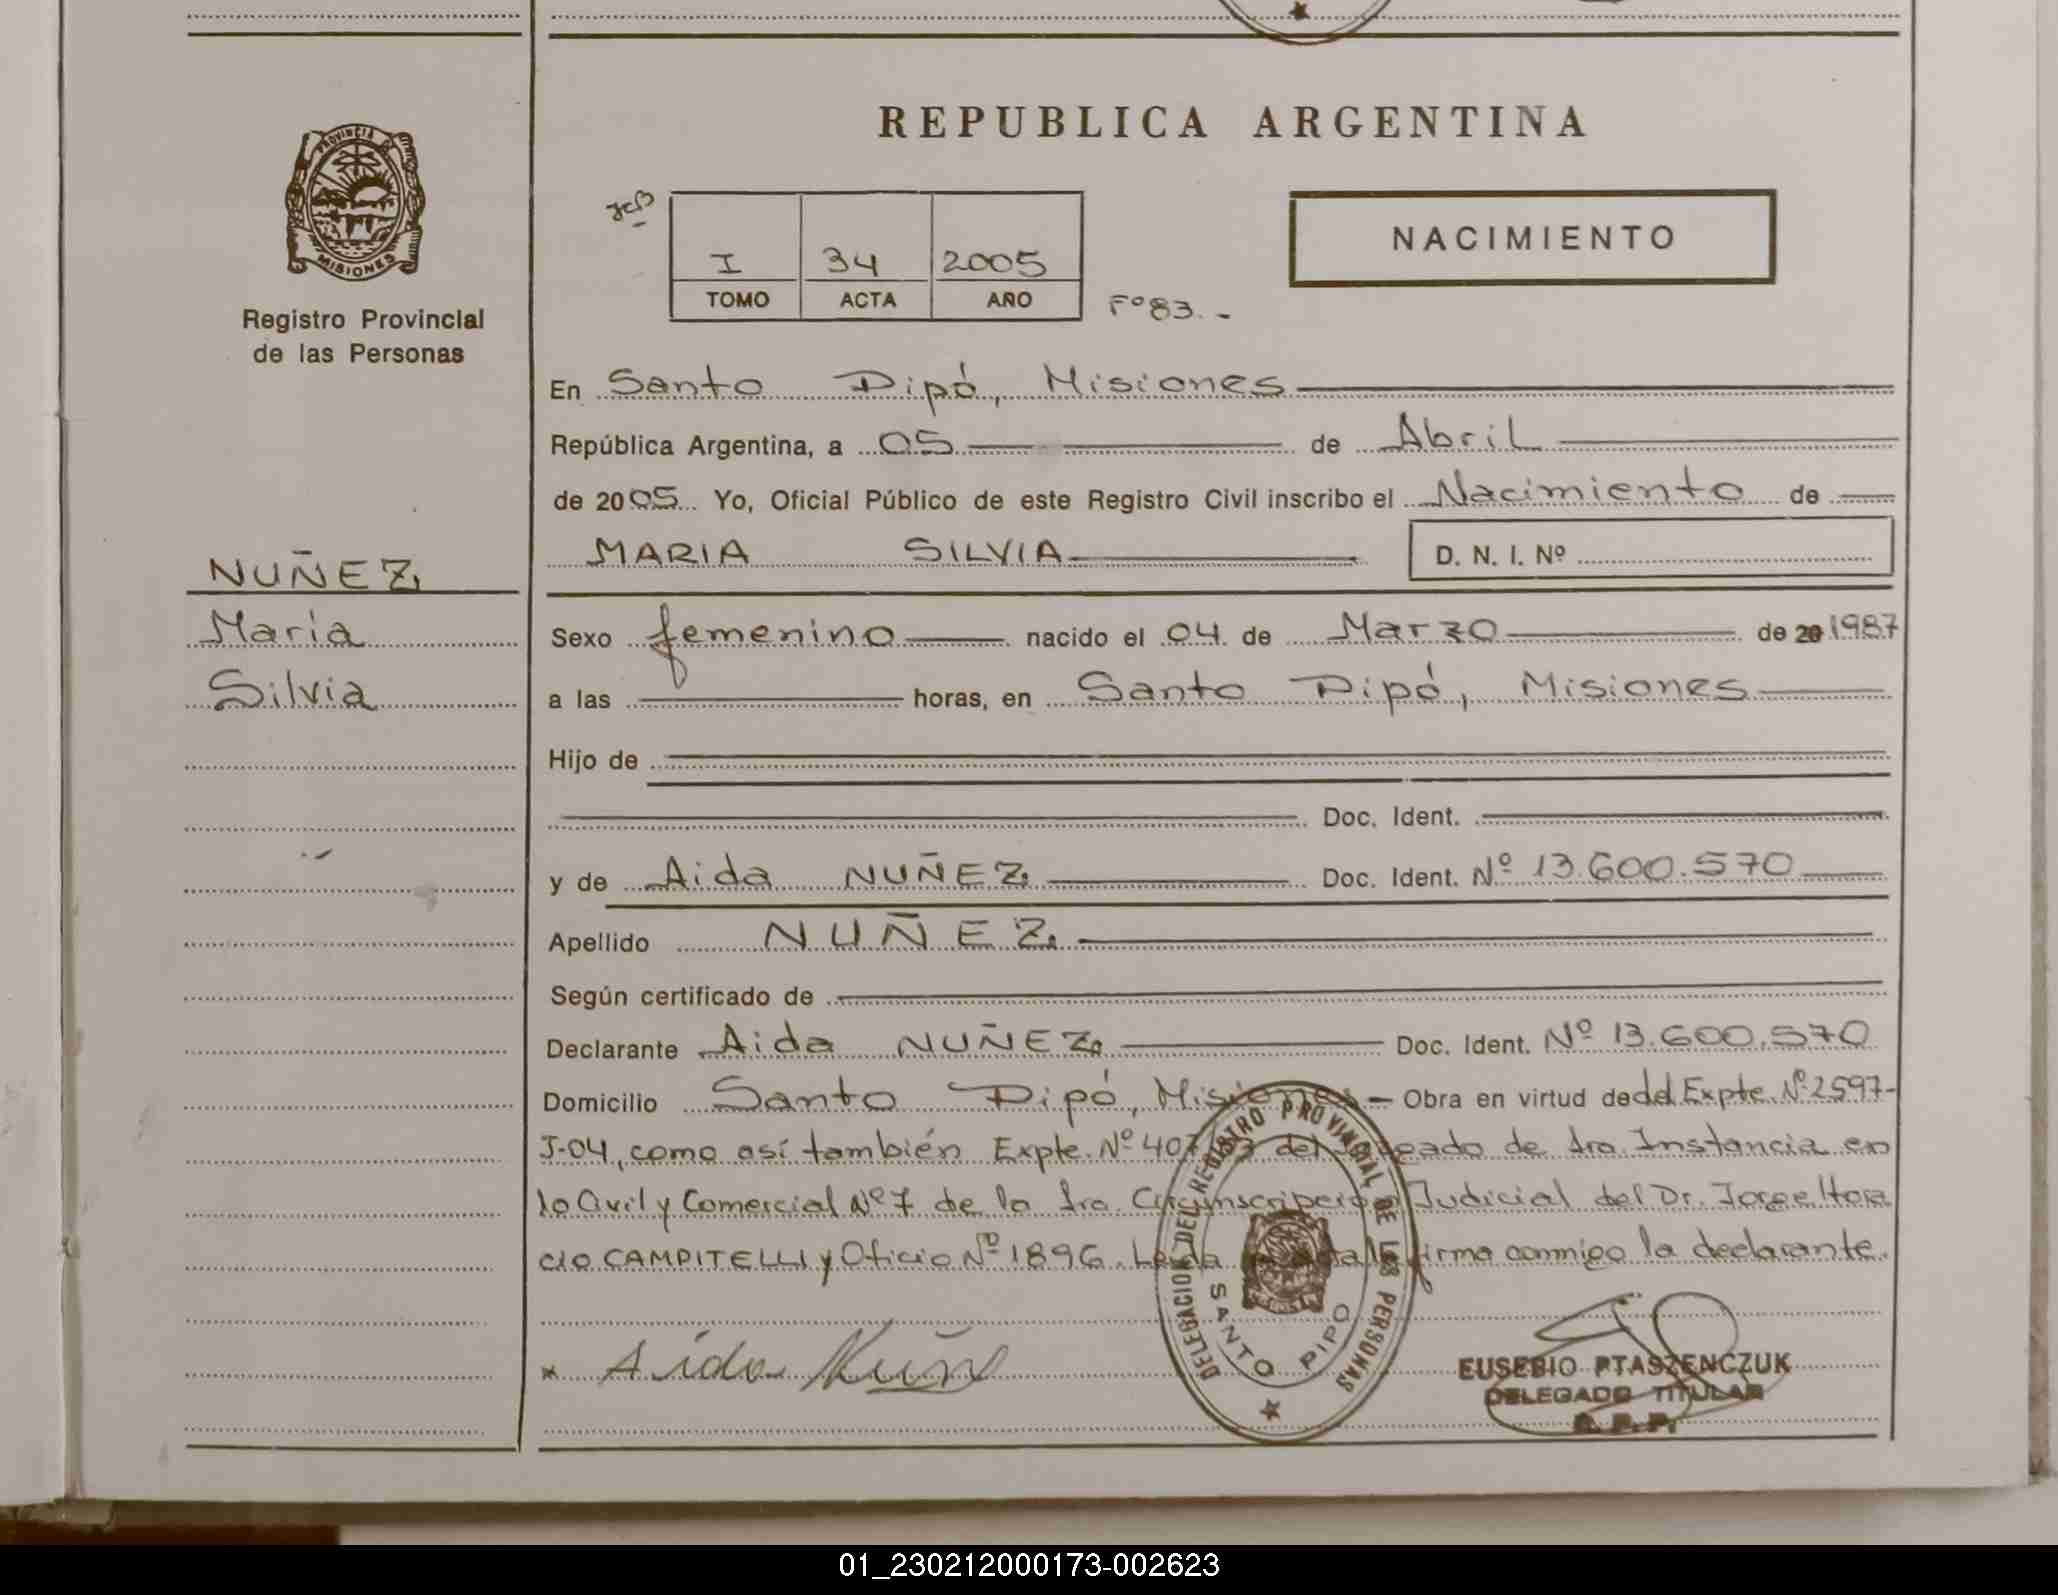 REPUBLICA ARGENTINA
PROVINCIA DE
MISIONES
Registro Provincial
de las Personas
NACIMIENTO
I 34 2005
TOMO ACTA AÑO
Fº 83.-
En Santo Pipó, Misiones
República Argentina, a 05 de Abril
de 2005 Yo, Oficial Público de este Registro Civil inscribo el Nacimiento de
MARIA SILVIA
D. N. I. Nº
NUÑEZ
María
Silvia
Sexo femenino nacido el 04 de Marzo de 20 1987
a las horas, en Santo Pipó, Misiones
Hijo de
Doc. Ident.
y de Aida NUÑEZ Doc. Ident. Nº 13.600.570
Apellido NUÑEZ
Según certificado de
Declarante Aida NUÑEZ Doc. Ident. Nº 13.600.570
Domicilio Santo Pipó, Misiones - Obra en virtud de del Expte. Nº 2597-
J-04, como así también Expte. Nº 407 del Juzgado de 1ra. Instancia en
lo Civil y Comercial Nº 7 de la 1ra. Circunscripción Judicial del Dr. Jorge Hora
cio CAMPITELLI y Oficio Nº 1896. Leída el acta firma conmigo la declarante.
x Aida Nuñ
DELEGACION DEL REGISTRO PROVINCIAL DE LAS PERSONAS
SANTO PIPO
EUSEBIO PTASZENCZUK
DELEGADO TITULAR
R. P. P.
01_230212000173-002623